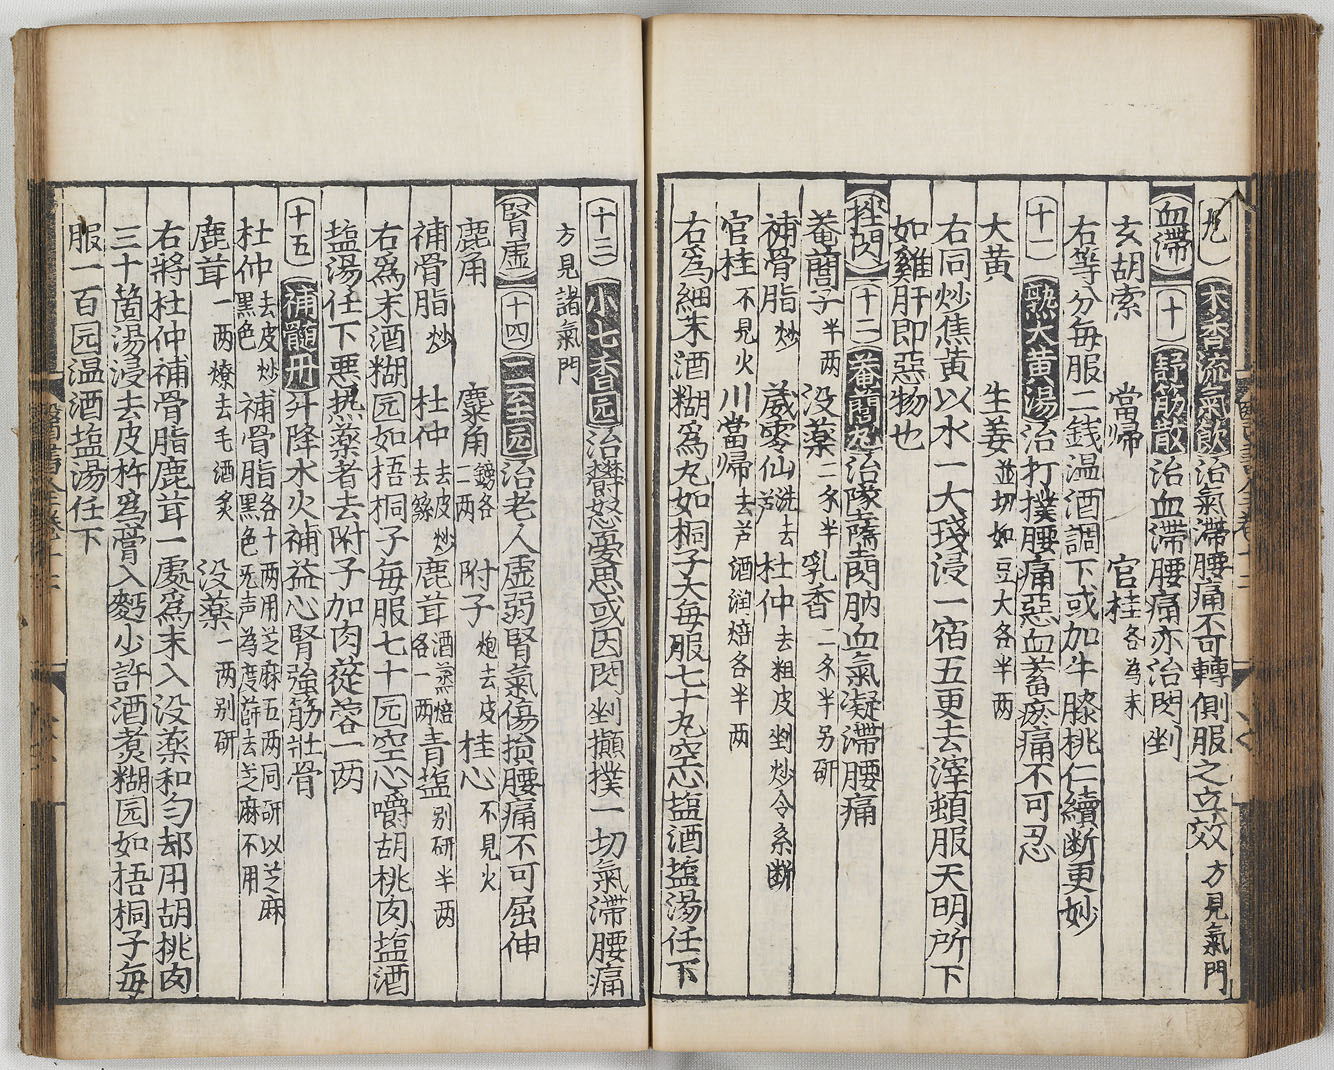 九 木香流氣飲 治氣滯腰痛不可轉側服之立效 方見氣門
血滯 十 舒筋散 治血滯腰痛亦治閃剉
玄胡索 當歸 官桂各為末
右等分每服二錢温酒調下或加牛膝桃仁續断更妙
十一 熟大黄湯 治打撲腰痛惡血蓄瘀痛不可忍
大黄 生姜並切如豆大各半两
右同炒焦黄以水一大琖浸一宿五更去滓頓服天明所下
如雞肝即惡物也
挫閃 十二 菴䕡丸 治墜墮閃肭血氣凝滯腰痛
菴䕡子半两 没藥二𠆤半 乳香二𠆤半另研
補骨脂炒 葳零仙洗去芦 杜仲去粗皮剉炒令糸断
官桂不見火 川當歸去芦酒润焙各半两
右爲細末酒糊爲丸如桐子大毎服七十丸空心塩酒塩湯任下
十三 小七香园 治鬱怒憂思或因閃剉攧撲一切氣滯腰痛
方見諸氣門
腎虚 十四 二至园 治老人虚弱腎氣傷損腰痛不可屈伸
鹿角 麋角鎊各一两 附子炮去皮 桂心不見火
補骨脂炒 杜仲去皮炒去絲 鹿茸酒蒸焙各一两 青塩别研半两
右爲末酒糊园如梧桐子毎服七十园空心嚼胡桃肉塩酒
塩湯任下悪热藥者去附子加肉蓯蓉一两
十五 補髓丹 升降水火補益心腎強筋壮骨
杜仲去皮炒黑色 補骨脂各十两用芝麻五两同研以芝麻黑色无声為度篩去芝麻不用
鹿茸一两燎去毛酒炙 没藥一两别研
右將杜仲補骨脂鹿茸一處爲末入没藥和匀却用胡桃肉
三十箇湯浸去皮杵爲膏入麪少許酒煮糊园如梧桐子毎
服一百园温酒塩湯任下